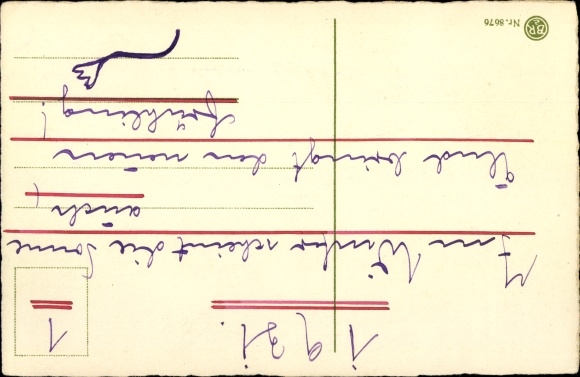 1
1931.
Im Winter scheint die Sonne
auch
Und bringt den neuen
Frühling!
Nr. 8676
BR